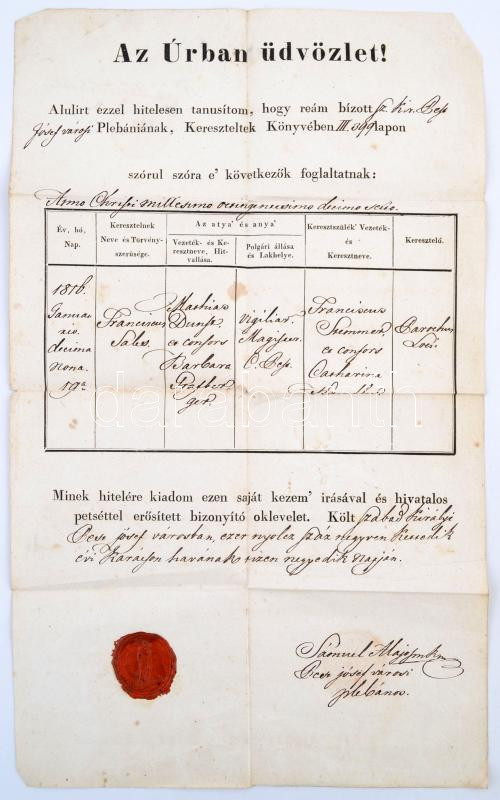 Az Úrban üdvözlet!
Alulirt ezzel hitelesen tanusítom, hogy reám bízott sz. Kir. Pest
Jósef városi Plebániának, Kereszteltek Könyvében III. 399 lapon
szórul szóra e' következők foglaltatnak:
Anno Christi millesimo octingentesimo decimo sexto.
Év, hó, Nap.
Keresztelnek Neve és Törvényszerüsége.
Az atya' és anya'
Vezeték- és Keresztneve, Hitvallása.
Polgári állása és Lakhelye.
Keresztszülék' Vezeték- és Keresztneve.
Keresztelő.
1816.
Januario
decima
nona.
19a
Franciscus
Sales.
Mathias
Dunst
et consors
Barbara
ger.
Vigiliar.
Magister
Franciscus
et consors
Catharina
Parochus
Loci.
Minek hitelére kiadom ezen saját kezem' irásával és hivatalos
petséttel erősített bizonyító oklevelet. Költ szabad Királyi
Pest jósef városban, ezer nyolcz száz negyven
évi Karácson havának tizen negyedik napján.
Sámuel
Pest jósef városi
plebános.
darabanth